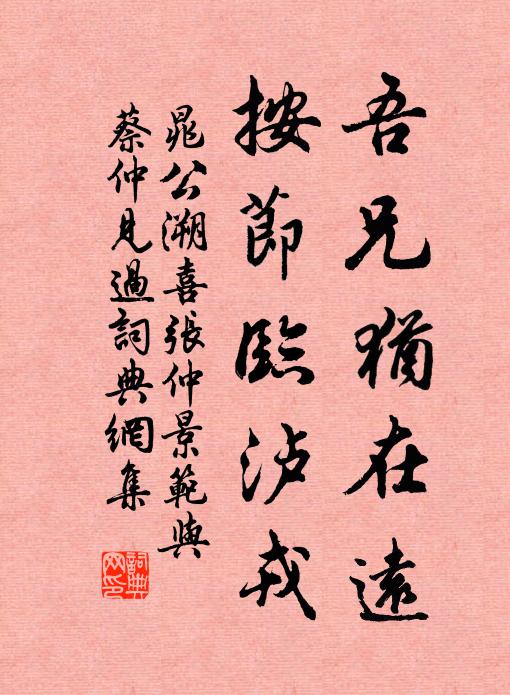 吾兄猶在遠
按節臨沙戎
晁公溯喜張仲景範與
蔡仲見過詞典網集
詞典网印